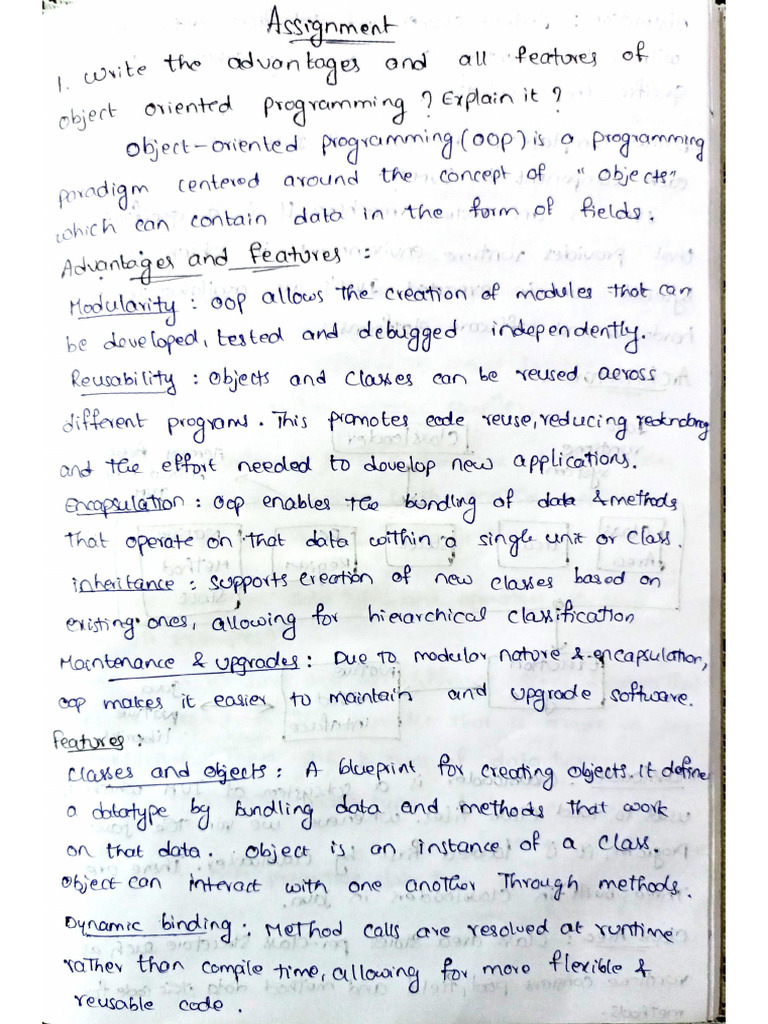 Assignment
1. Write the advantages and all features of
object oriented programming ? Explain it ?
object-oriented programming (OOP) is a programming
paradigm centered around the concept of "objects"
which can contain data in the form of fields.
Advantages and Features :
Modularity : OOP allows the creation of modules that can
be developed, tested and debugged independently.
Reusability : objects and classes can be reused across
different programs. This promotes code reuse, reducing
and the effort needed to develop new applications.
Encapsulation : OOP enables the bundling of data & methods
that operate on that data within a single unit or class.
inheritance : supports creation of new classes based on
existing ones, allowing for hierarchical classification
Maintenance & upgrades : Due to modular nature & encapsulation,
OOP makes it easier to maintain and upgrade software.
Features :
Classes and objects : A blueprint for creating objects. it define
a datatype by bundling data and methods that work
on that data. object is an instance of a class.
object can interact with one another through methods.
Dynamic binding : Method calls are resolved at runtime
rather than compile time, allowing for more flexible &
reusable code.